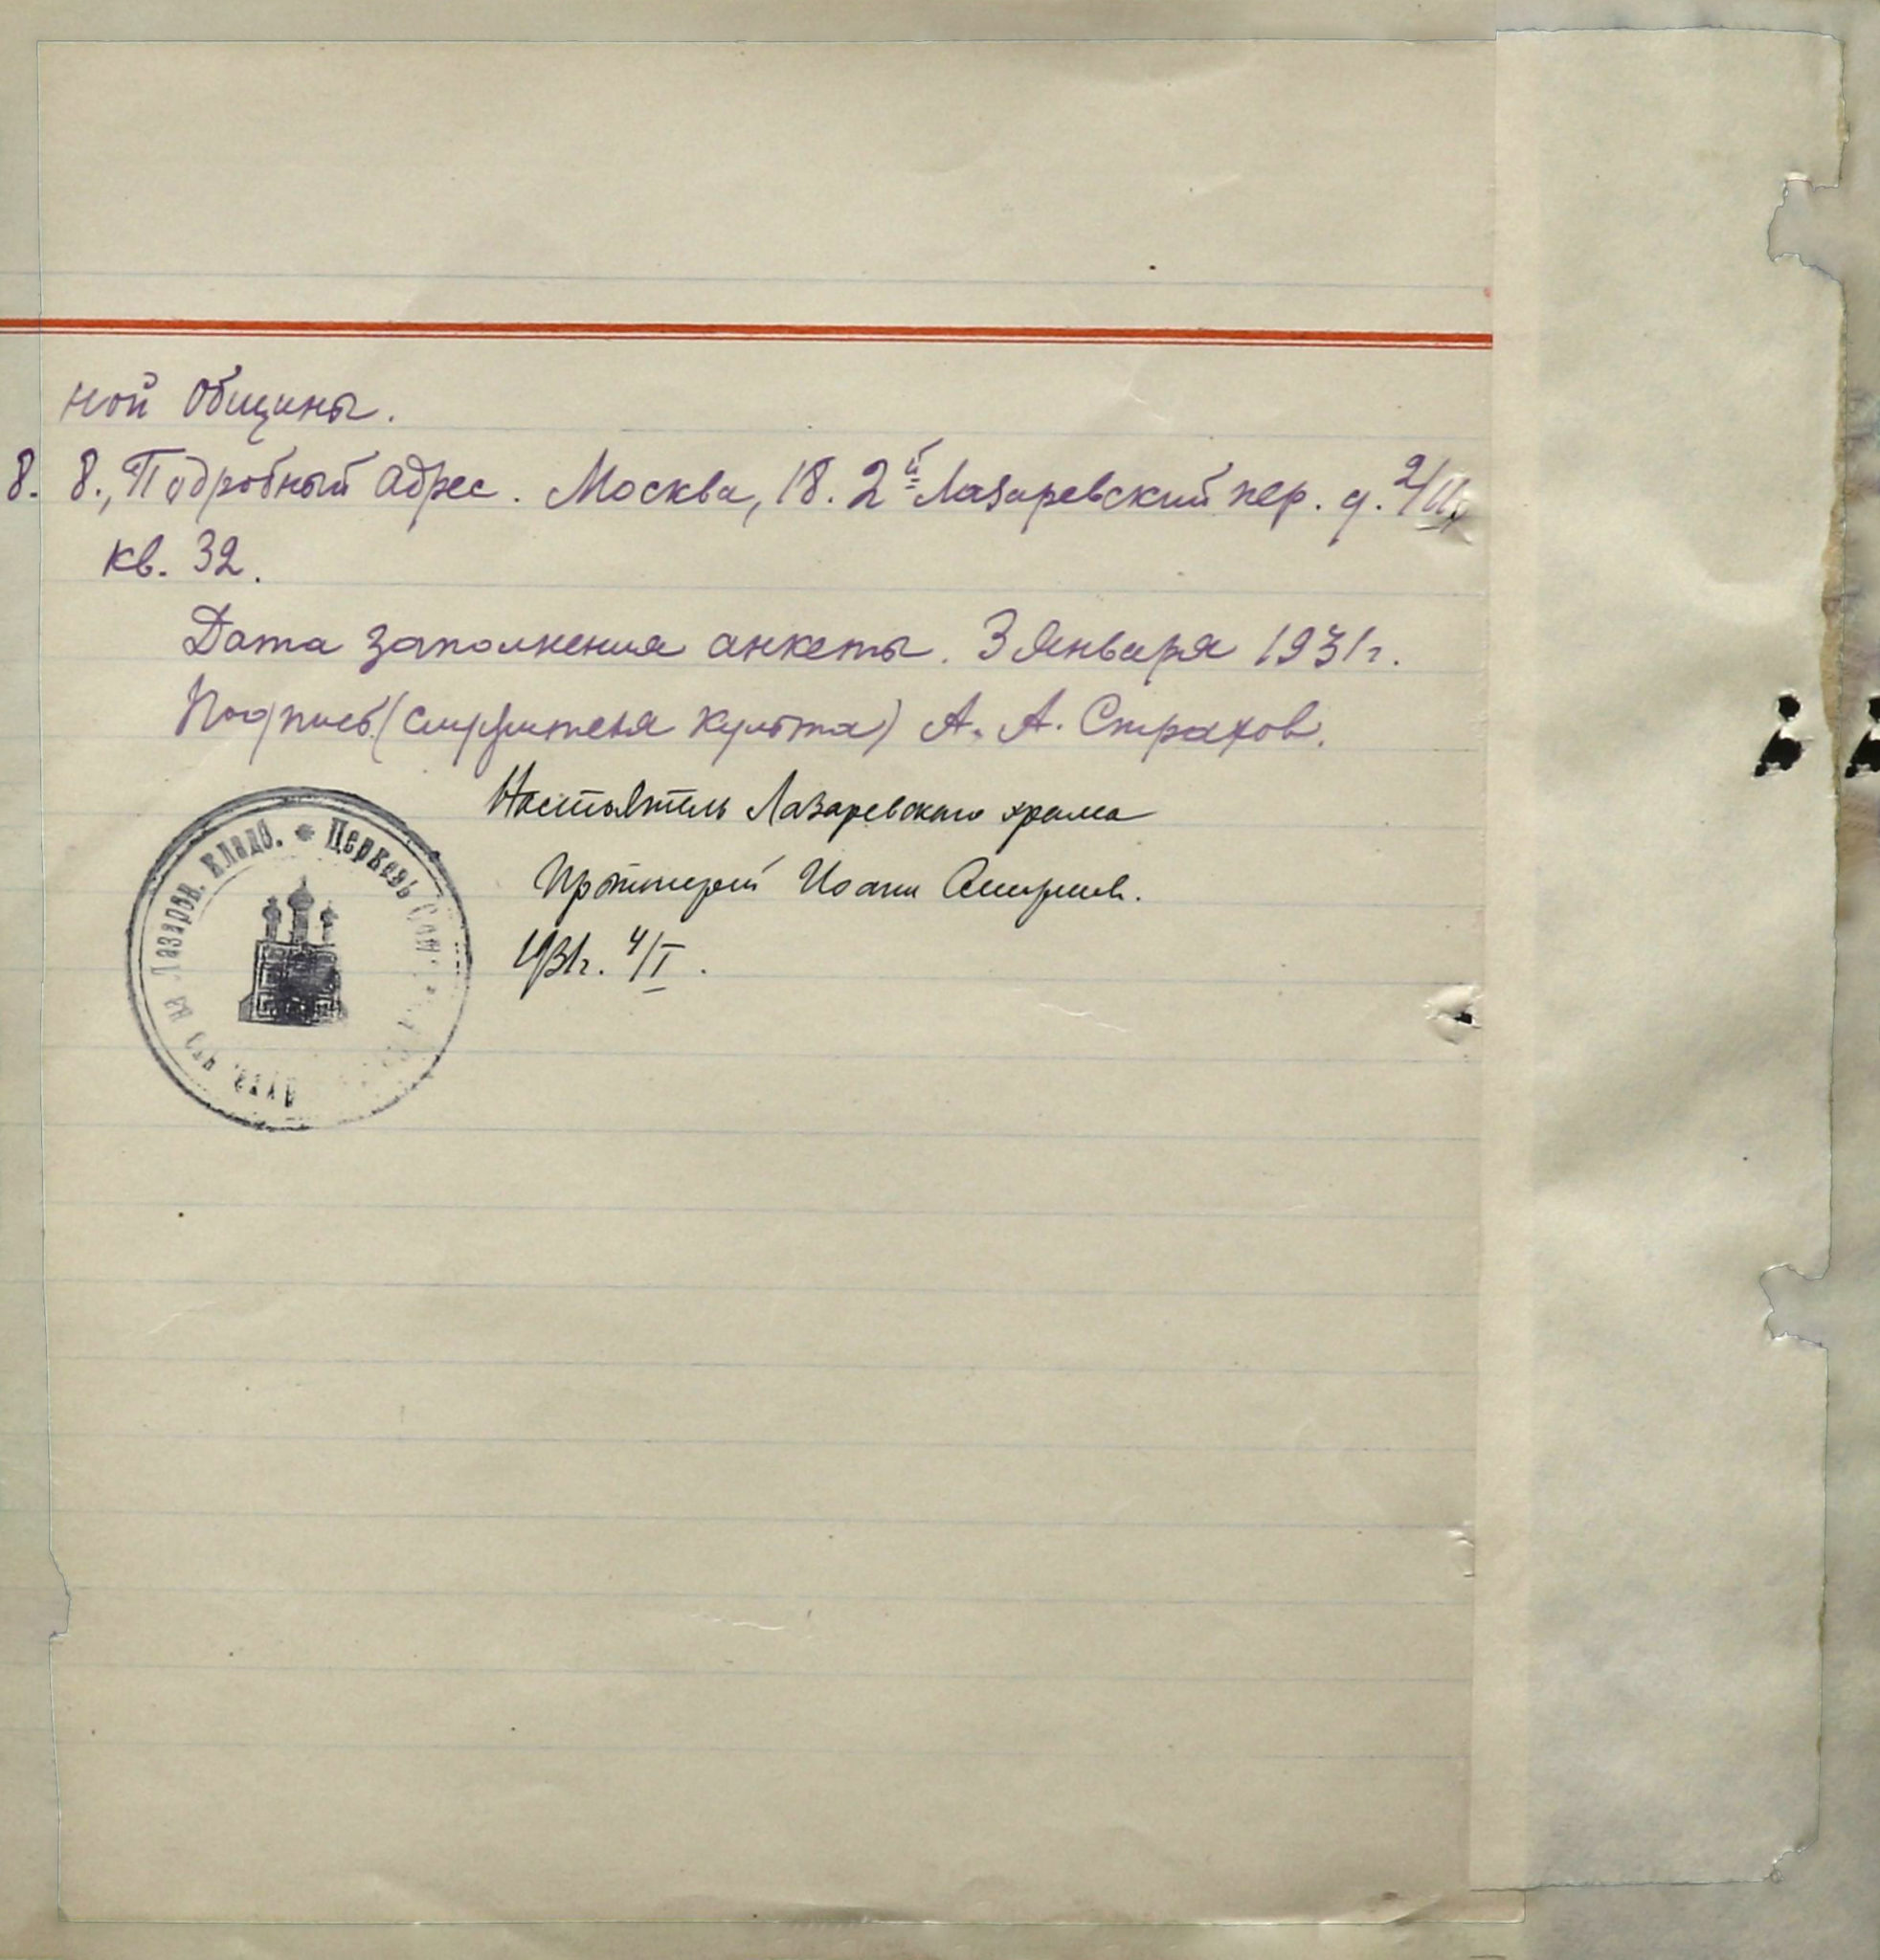 ной Общины.
8. 8., Подробный адрес. Москва, 18. 2й Лазаревский пер. д. 2/
кв. 32.
Дата заполнения анкеты. 3 Января 1931 г.
Подпись (служителя культа) А. А. Страхов.
Настоятель Лазаревского храма
Протоиерей Иоанн Смирнов.
1931 г. 4/I.
Церковь на Лазарев. кладб.